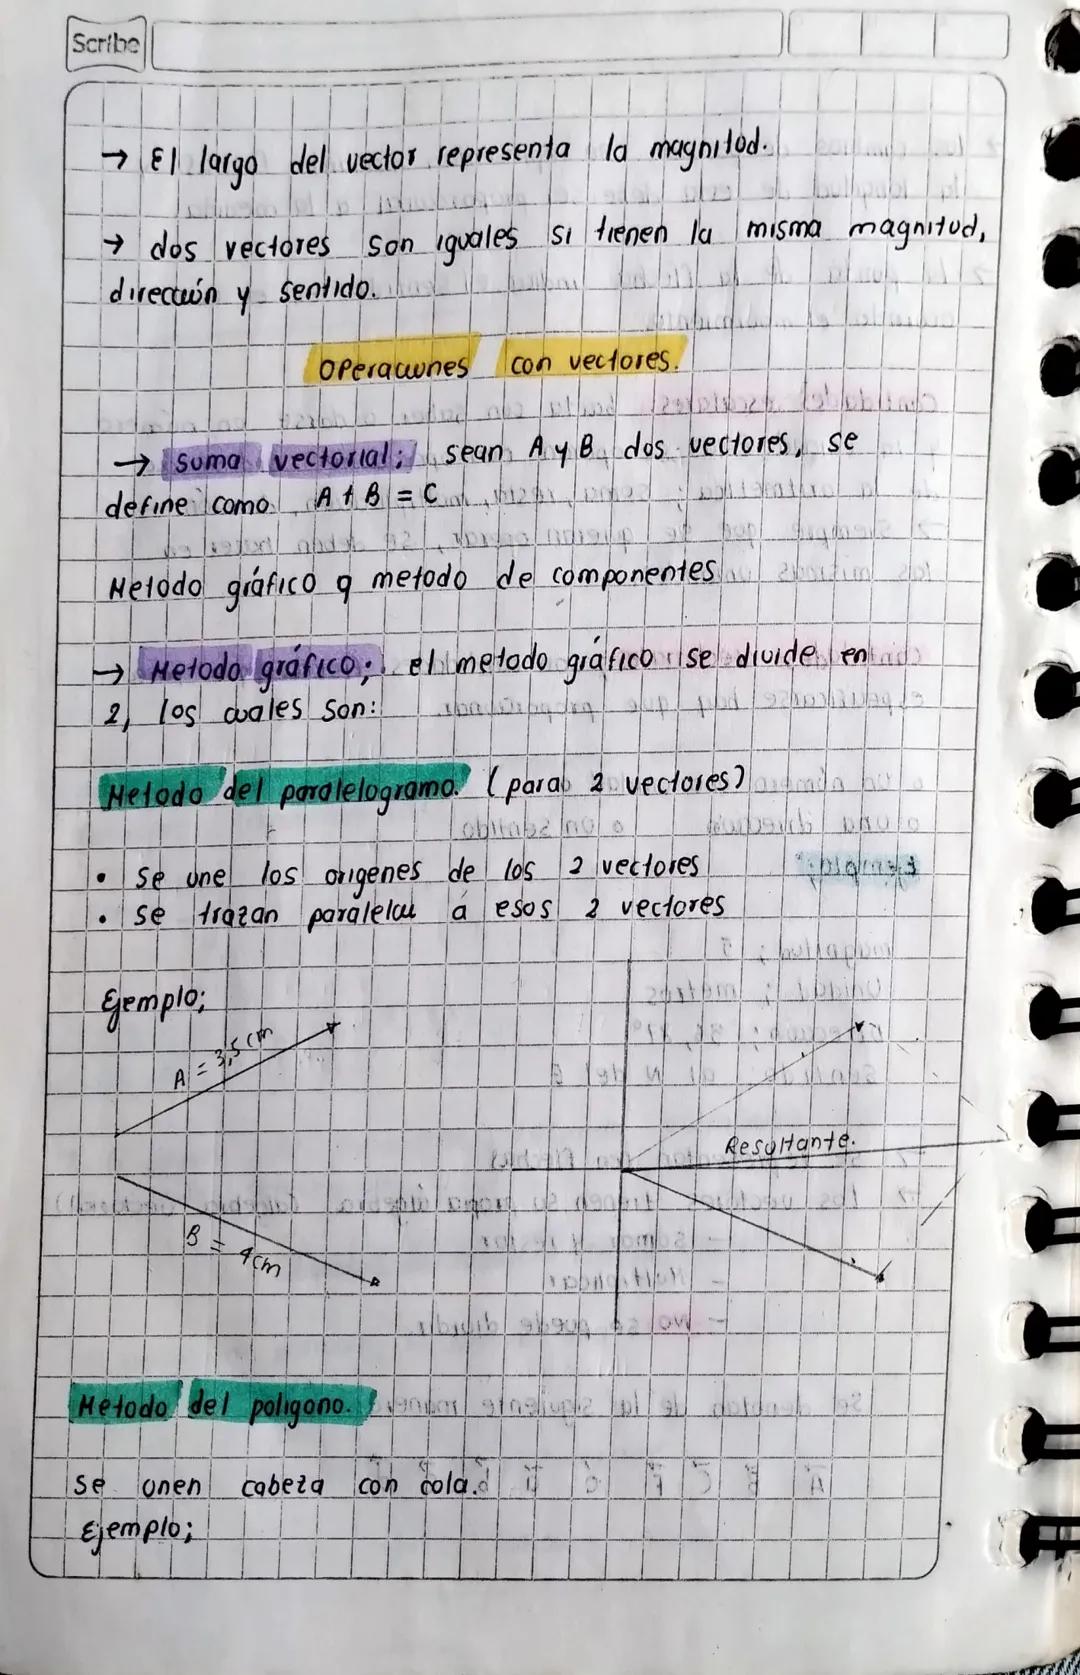 Scribe
→ El largo del vector representa la magnitud.
→ dos vectores son iguales si tienen la misma magnitud,
dirección y sentido.
Operaciones con vectores.
→ Suma vectorial; sean A y B dos vectores, se
define como A + B = C
Metodo gráfico q metodo de componentes
→ Metodo gráfico; el metodo gráfico se divide en
2, los cuales son:
Metodo del paralelogramo. (para 2 vectores)
• se une los origenes de los 2 vectores
• se trazan paralelas á esos 2 vectores
Ejemplo;
A = 3,5 cm
Resultante.
B = 4cm
Metodo del poligono.
se unen cabeza con cola.
Ejemplo;